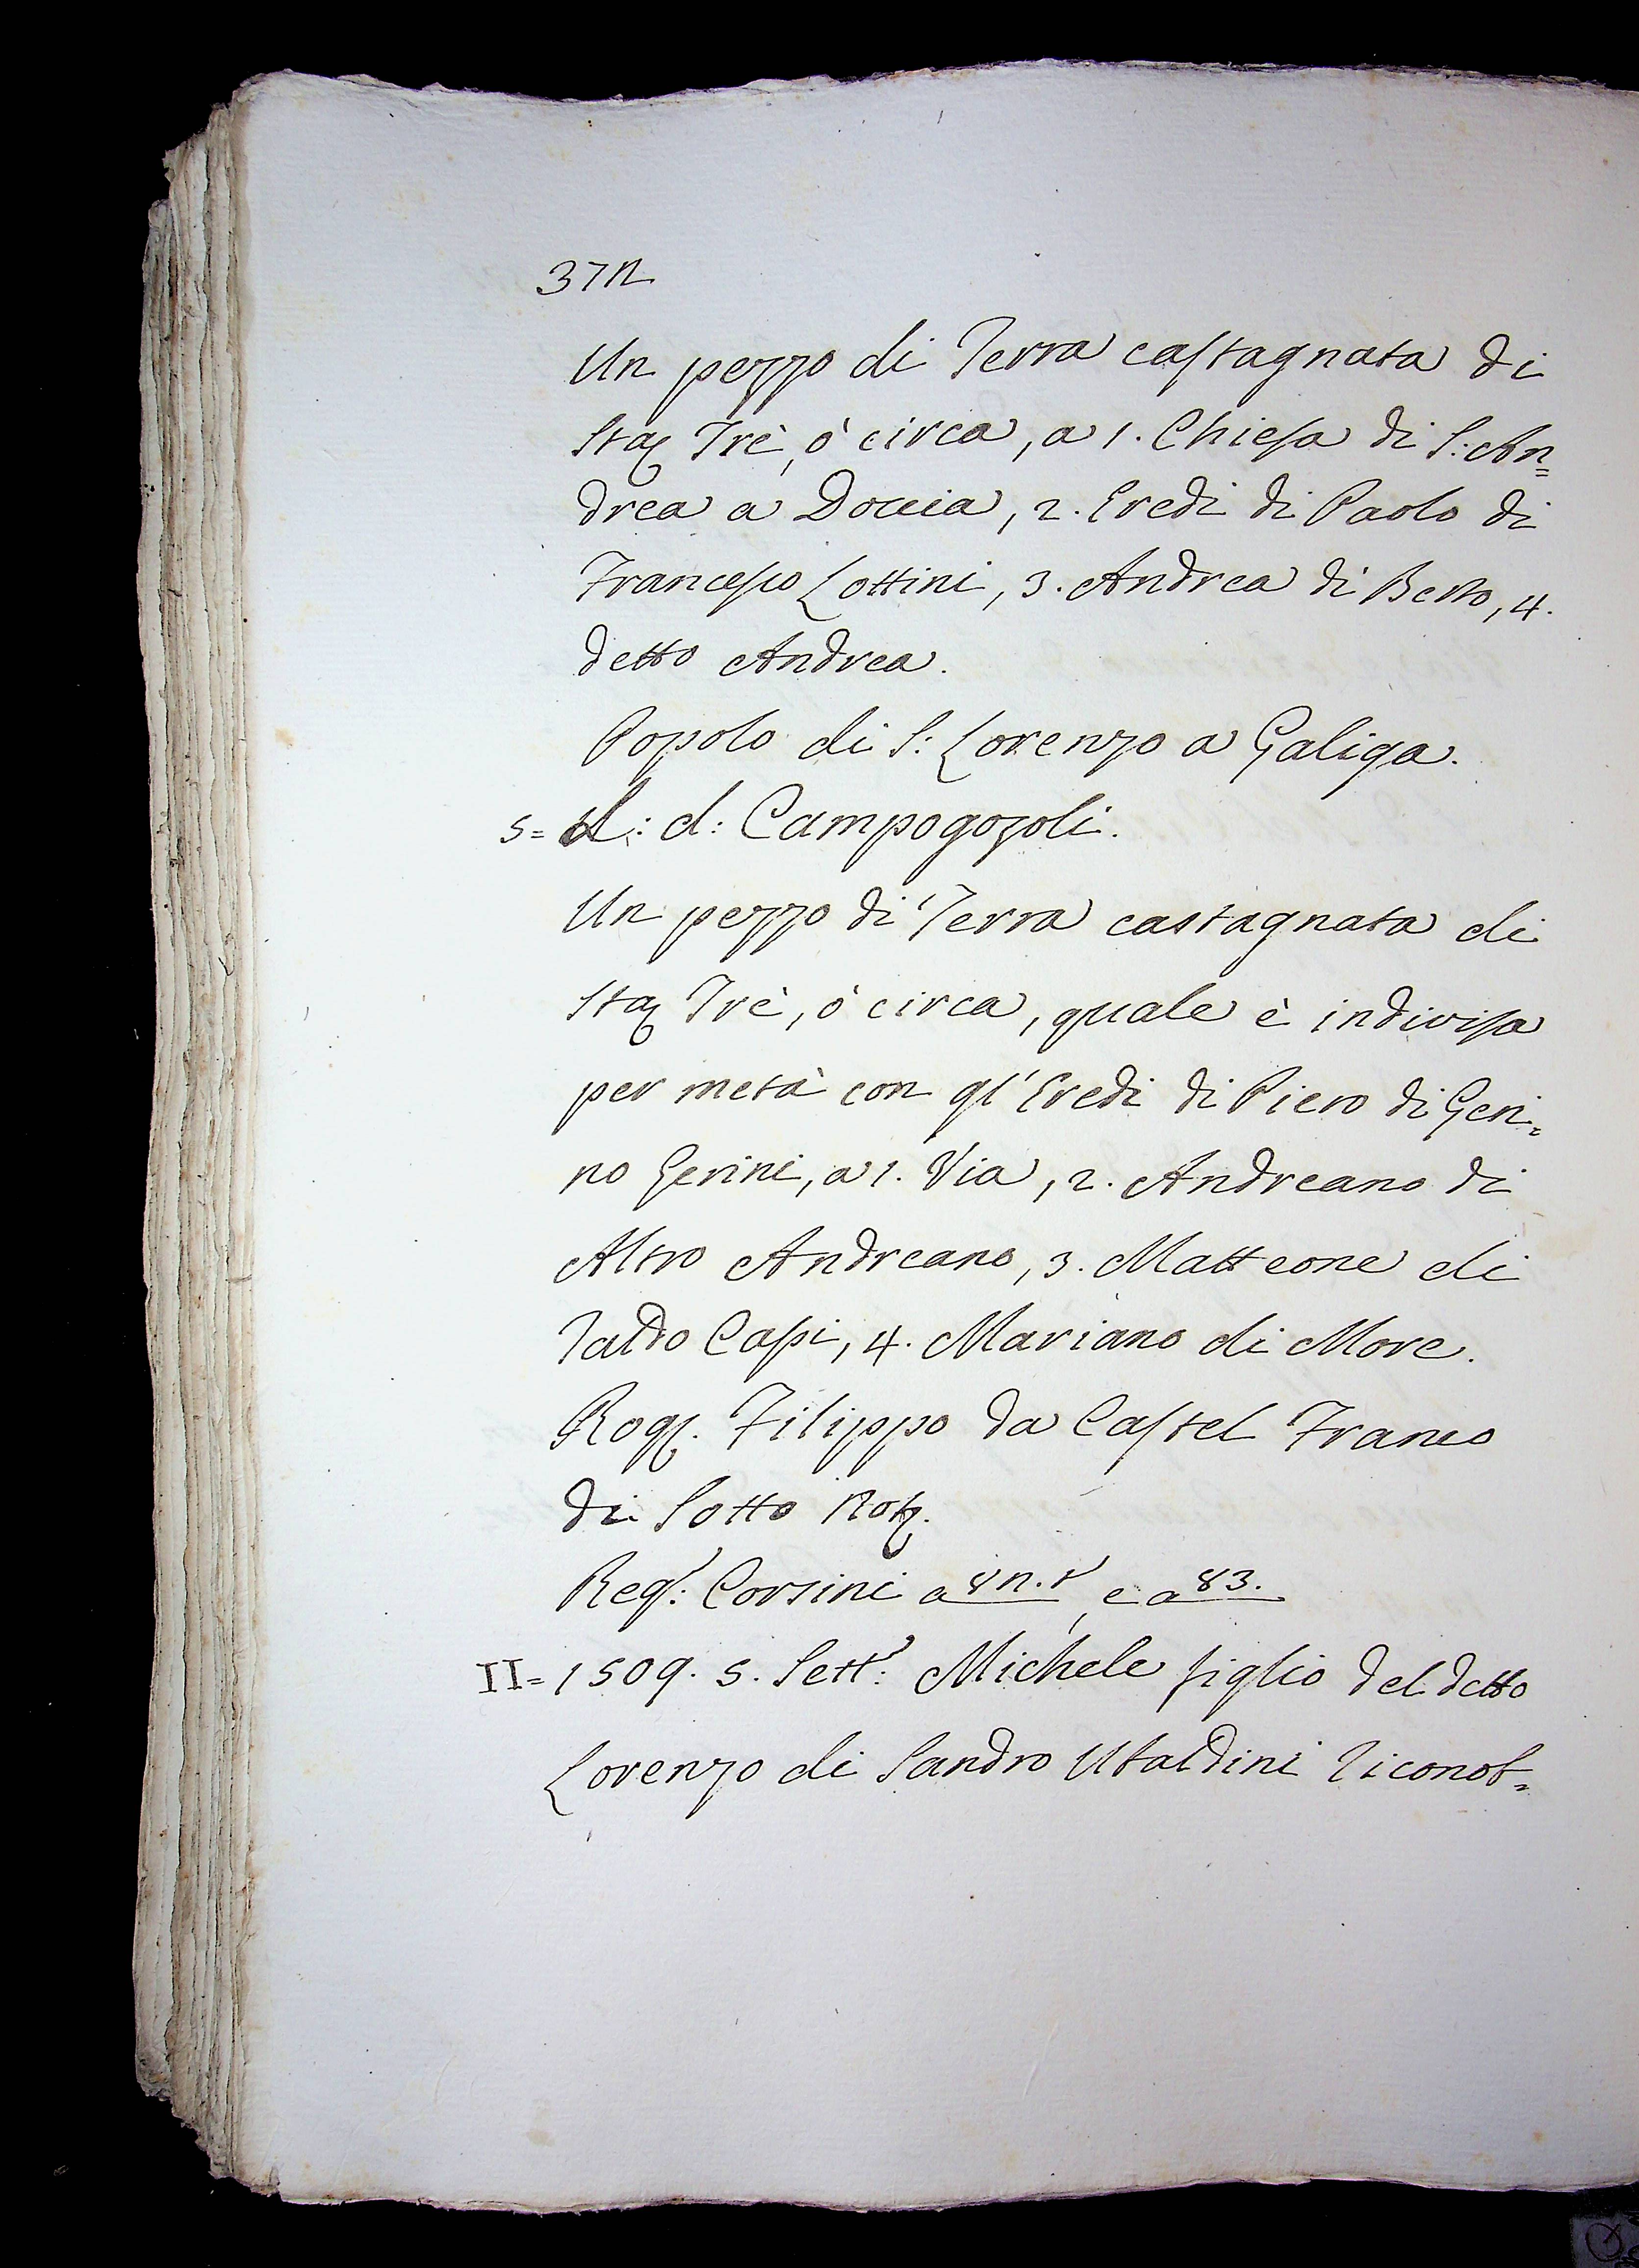 372
Un pezzo di Terra castagnata di
Sta: Trè, ò circa, a 1. Chiesa di S: An=
drea a Doccia, 2. Eredi di Paolo di
Francesco Lottini, 3. Andrea di Betto, 4.
detto Andrea.
Popolo di S: Lorenzo a Galiga.
5= L: d: Campogozoli.
Un pezzo di Terra castagnata di
Sta: Trè, ò circa, quale è indivisa
per metà con gl' Eredi di Piero di Geri=
no Gerini, a 1. Via, 2. Andreano di
Altro Andreano, 3. Matteone di
Taldo Capi, 4. Mariano di More.
Rog: Filippo da Castel Franco
di Sotto Not:
Reg: Corsini a 82. e a 83.
II= 1509. 5. Sett: Michele figlio del detto
Lorenzo di Sandro Ubaldini riconob=